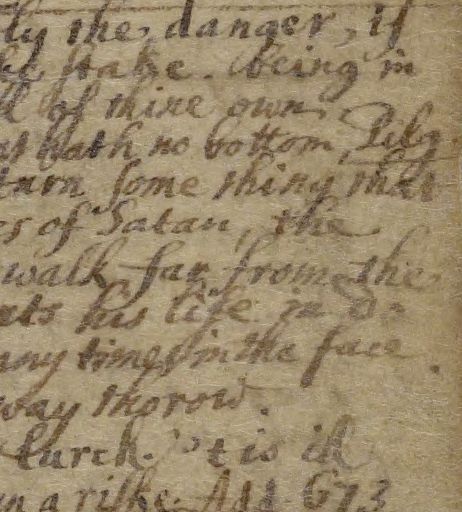 ly the danger, if
stake. being in
of mine own
hath no bottom, Pilg
turn some thing that
es of Satan, the
walk far from the
his life in
any times in the face
way thorow.
lurch. 't is ill
in a riske. Add. 673